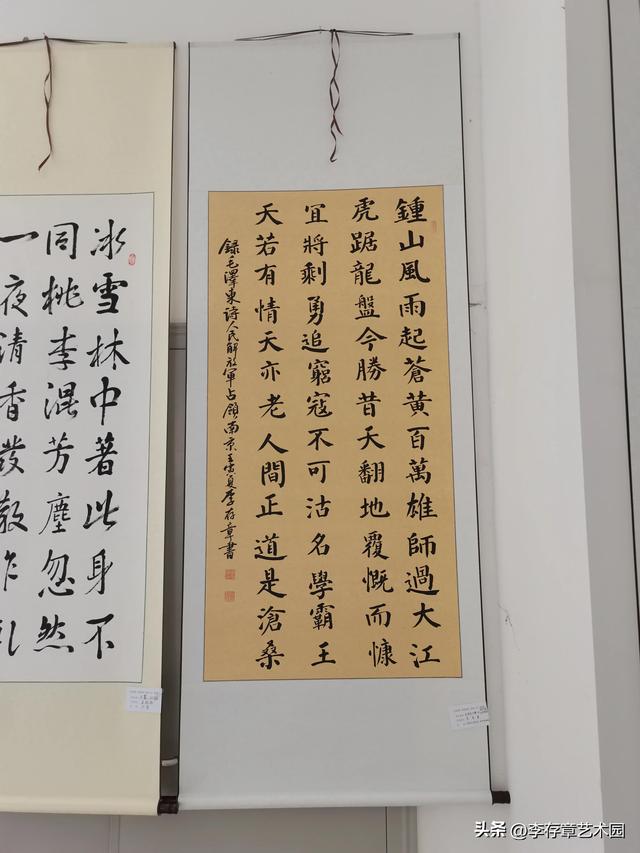 鍾山風雨起蒼黃百萬雄師過大江
虎踞龍盤今勝昔天翻地覆慨而慷
宜將剩勇追窮寇不可沽名學霸王
天若有情天亦老人間正道是滄桑
錄毛澤東詩人民解放軍占領南京壬寅夏李存章書
冰雪林中著此身不
同桃李混芳塵忽然
一夜清香發散作
头条 @李存章艺术园